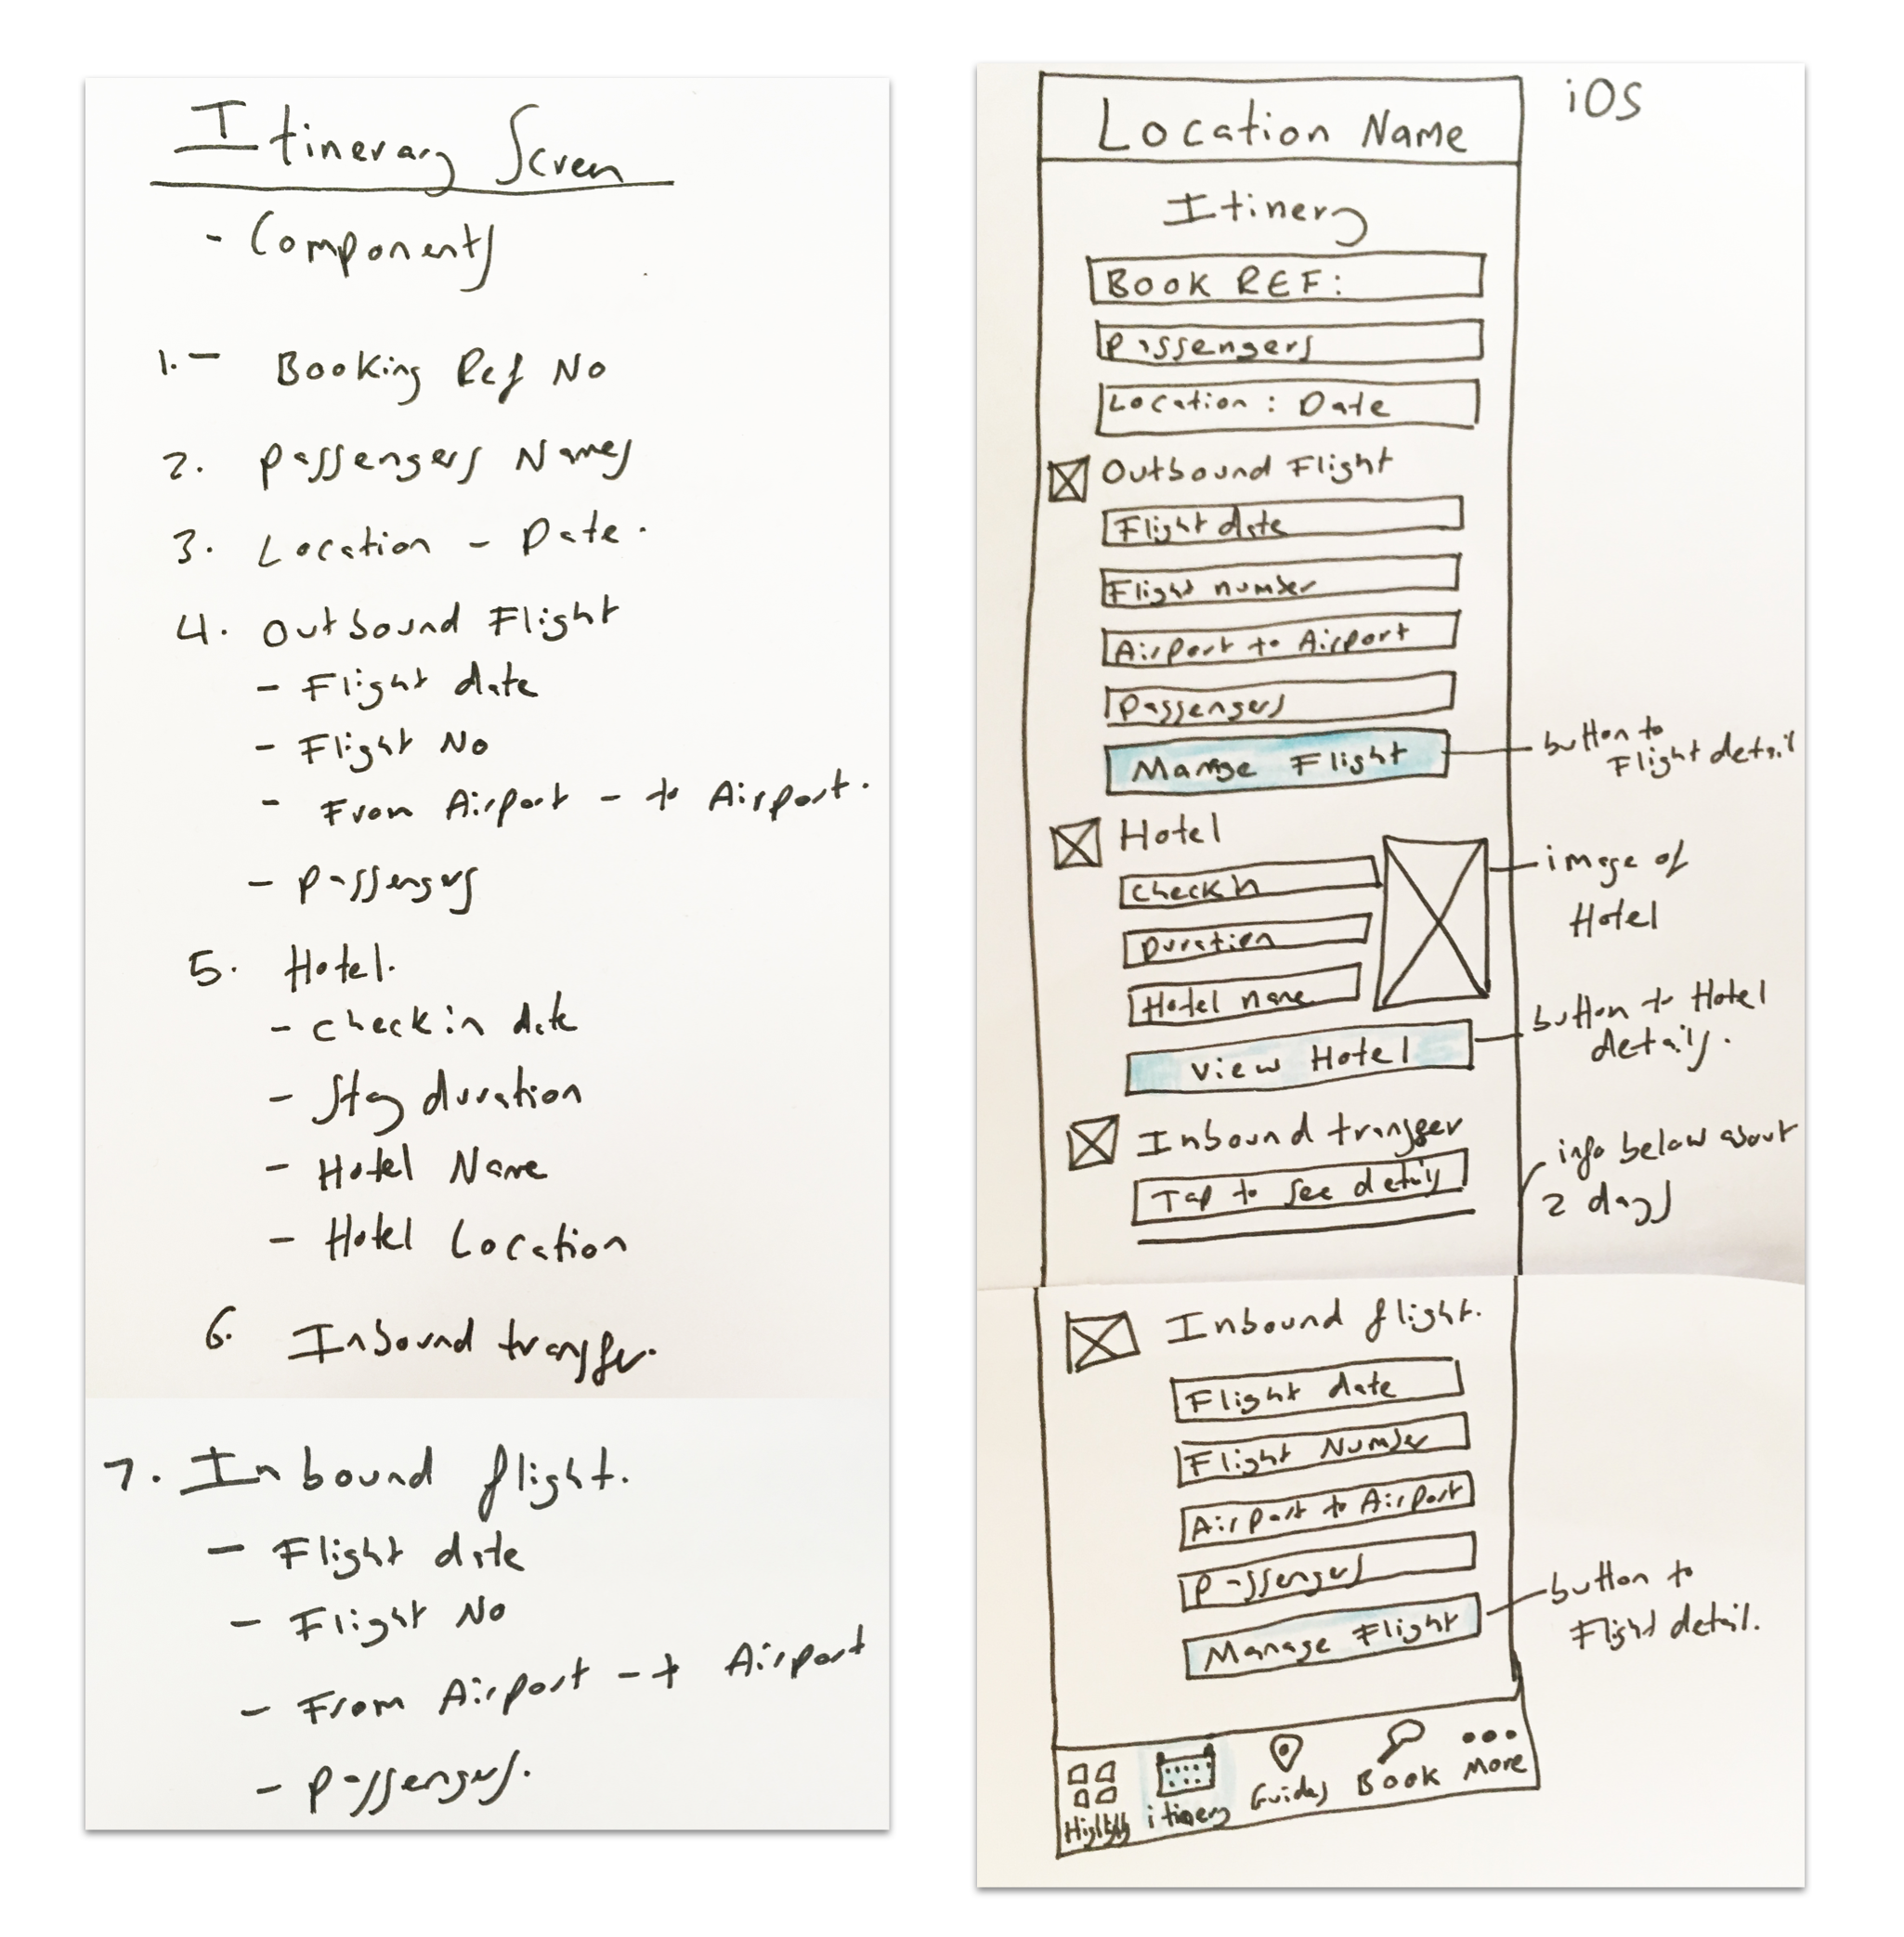 Itinerary Screen
- Components
1. - Booking Ref No
2. Passengers Names
3. Location - Date.
4. Outbound Flight
- Flight date
- Flight No
- From Airport - to Airport.
- Passengers
5. Hotel.
- Check in date
- Stay duration
- Hotel Name
- Hotel Location
6. Inbound transfer.
7. Inbound flight.
- Flight date
- Flight No
- From Airport - t Airport
- Passengers.
iOS
Location Name
Itinery
BOOK REF:
Passengers
Location : Date
Outbound Flight
Flight date
Flight number
Airport to Airport
Passengers
Manage Flight
button to
Flight detail
Hotel
Check in
Duration
Hotel name
image of
Hotel
View Hotel
button to Hotel
details.
Inbound transfer
Tap to see details
info below about
2 days
Inbound flight.
Flight date
Flight Number
Airport to Airport
Passengers
Manage Flight
button to
Flight detail.
itinery
Guides
Book
More